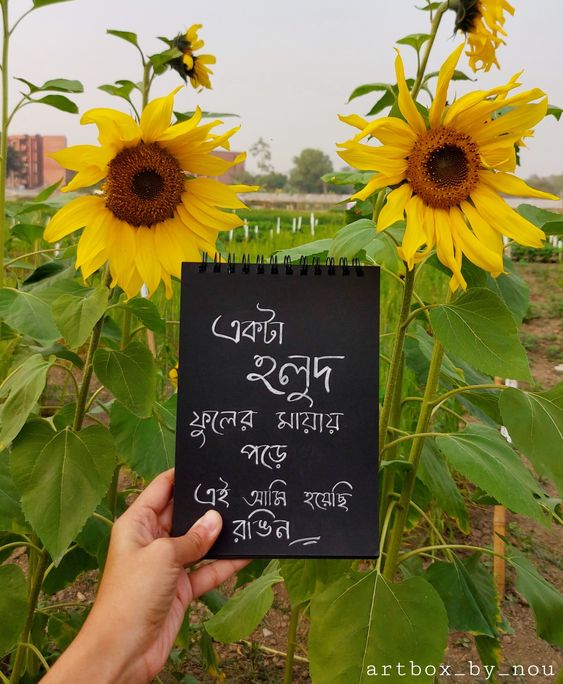 একটা
হলুদ
ফুলের মায়ায়
পড়ে
এই আমি হয়েছি
রঙিন
artbox_by_nou